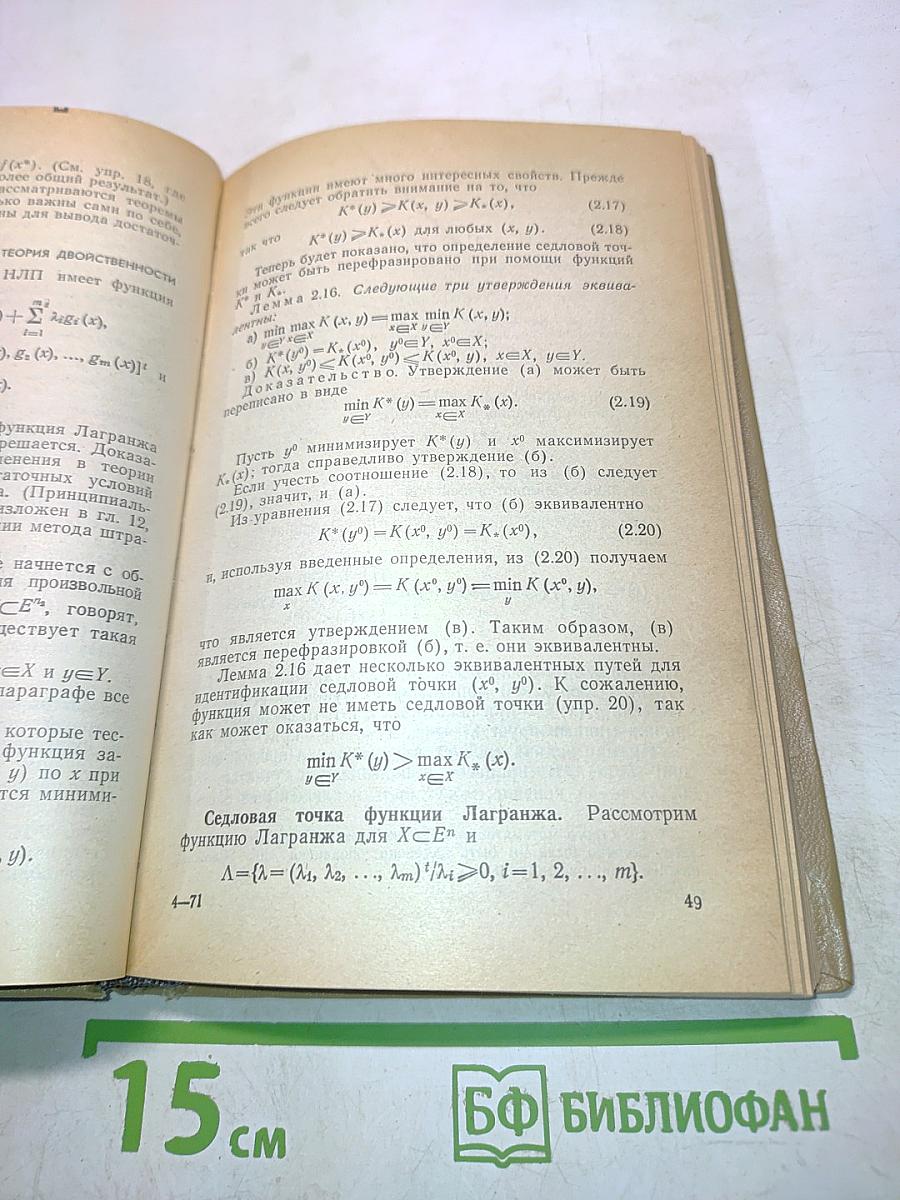 f(x*). (См. упр. 18, где
более общий результат.)
рассматриваются теоремы
ько важны сами по себе,
ны для вывода достаточ-
ТЕОРИЯ ДВОЙСТВЕННОСТИ
НЛП имеет функция
)+ Σ λᵢgᵢ(x),
i=1
), g₂(x), ..., gₘ(x)]ᵗ и
x).
функция Лагранжа
решается. Доказа-
менения в теории
таточных условий
а. (Принципиаль-
изложен в гл. 12,
нии метода штра-
е начнется с об-
ля произвольной
⊂Eⁿ², говорят,
ществует такая
∈X и y∈Y.
параграфе все
которые тес-
функция за-
y) по x при
тся миними-
, y).
Эти функции имеют много интересных свойств. Прежде
всего следует обратить внимание на то, что
K*(y)⩾K(x, y)⩾K₊(x), (2.17)
так что K*(y)⩾K₊(x) для любых (x, y). (2.18)
Теперь будет показано, что определение седловой точ-
ки может быть перефразировано при помощи функций
K* и K₊.
Лемма 2.16. Следующие три утверждения эквива-
лентны:
а) min max K (x, y)=max min K (x, y);
y∈Y x∈X x∈X y∈Y
б) K*(y⁰)=K₊(x⁰), y⁰∈Y, x⁰∈X;
в) K(x, y⁰)⩽K(x⁰, y⁰)⩽K(x⁰, y), x∈X, y∈Y.
Доказательство. Утверждение (а) может быть
переписано в виде
min K* (y)=max K₊ (x). (2.19)
y∈Y x∈X
Пусть y⁰ минимизирует K*(y) и x⁰ максимизирует
K₊(x); тогда справедливо утверждение (б).
Если учесть соотношение (2.18), то из (б) следует
(2.19), значит, и (а).
Из уравнения (2.17) следует, что (б) эквивалентно
K*(y⁰)=K(x⁰, y⁰)=K₊(x⁰), (2.20)
и, используя введенные определения, из (2.20) получаем
max K (x, y⁰)=K (x⁰, y⁰)=min K (x⁰, y),
x y
что является утверждением (в). Таким образом, (в)
является перефразировкой (б), т. е. они эквивалентны.
Лемма 2.16 дает несколько эквивалентных путей для
идентификации седловой точки (x⁰, y⁰). К сожалению,
функция может не иметь седловой точки (упр. 20), так
как может оказаться, что
min K* (y)>max K₊ (x).
y∈Y x∈X
Седловая точка функции Лагранжа. Рассмотрим
функцию Лагранжа для X⊂Eⁿ и
Λ={λ=(λ₁, λ₂, ..., λₘ)ᵗ/λᵢ⩾0, i=1, 2, ..., m}.
4—71 49
15 см
БФ БИБЛИОФАН